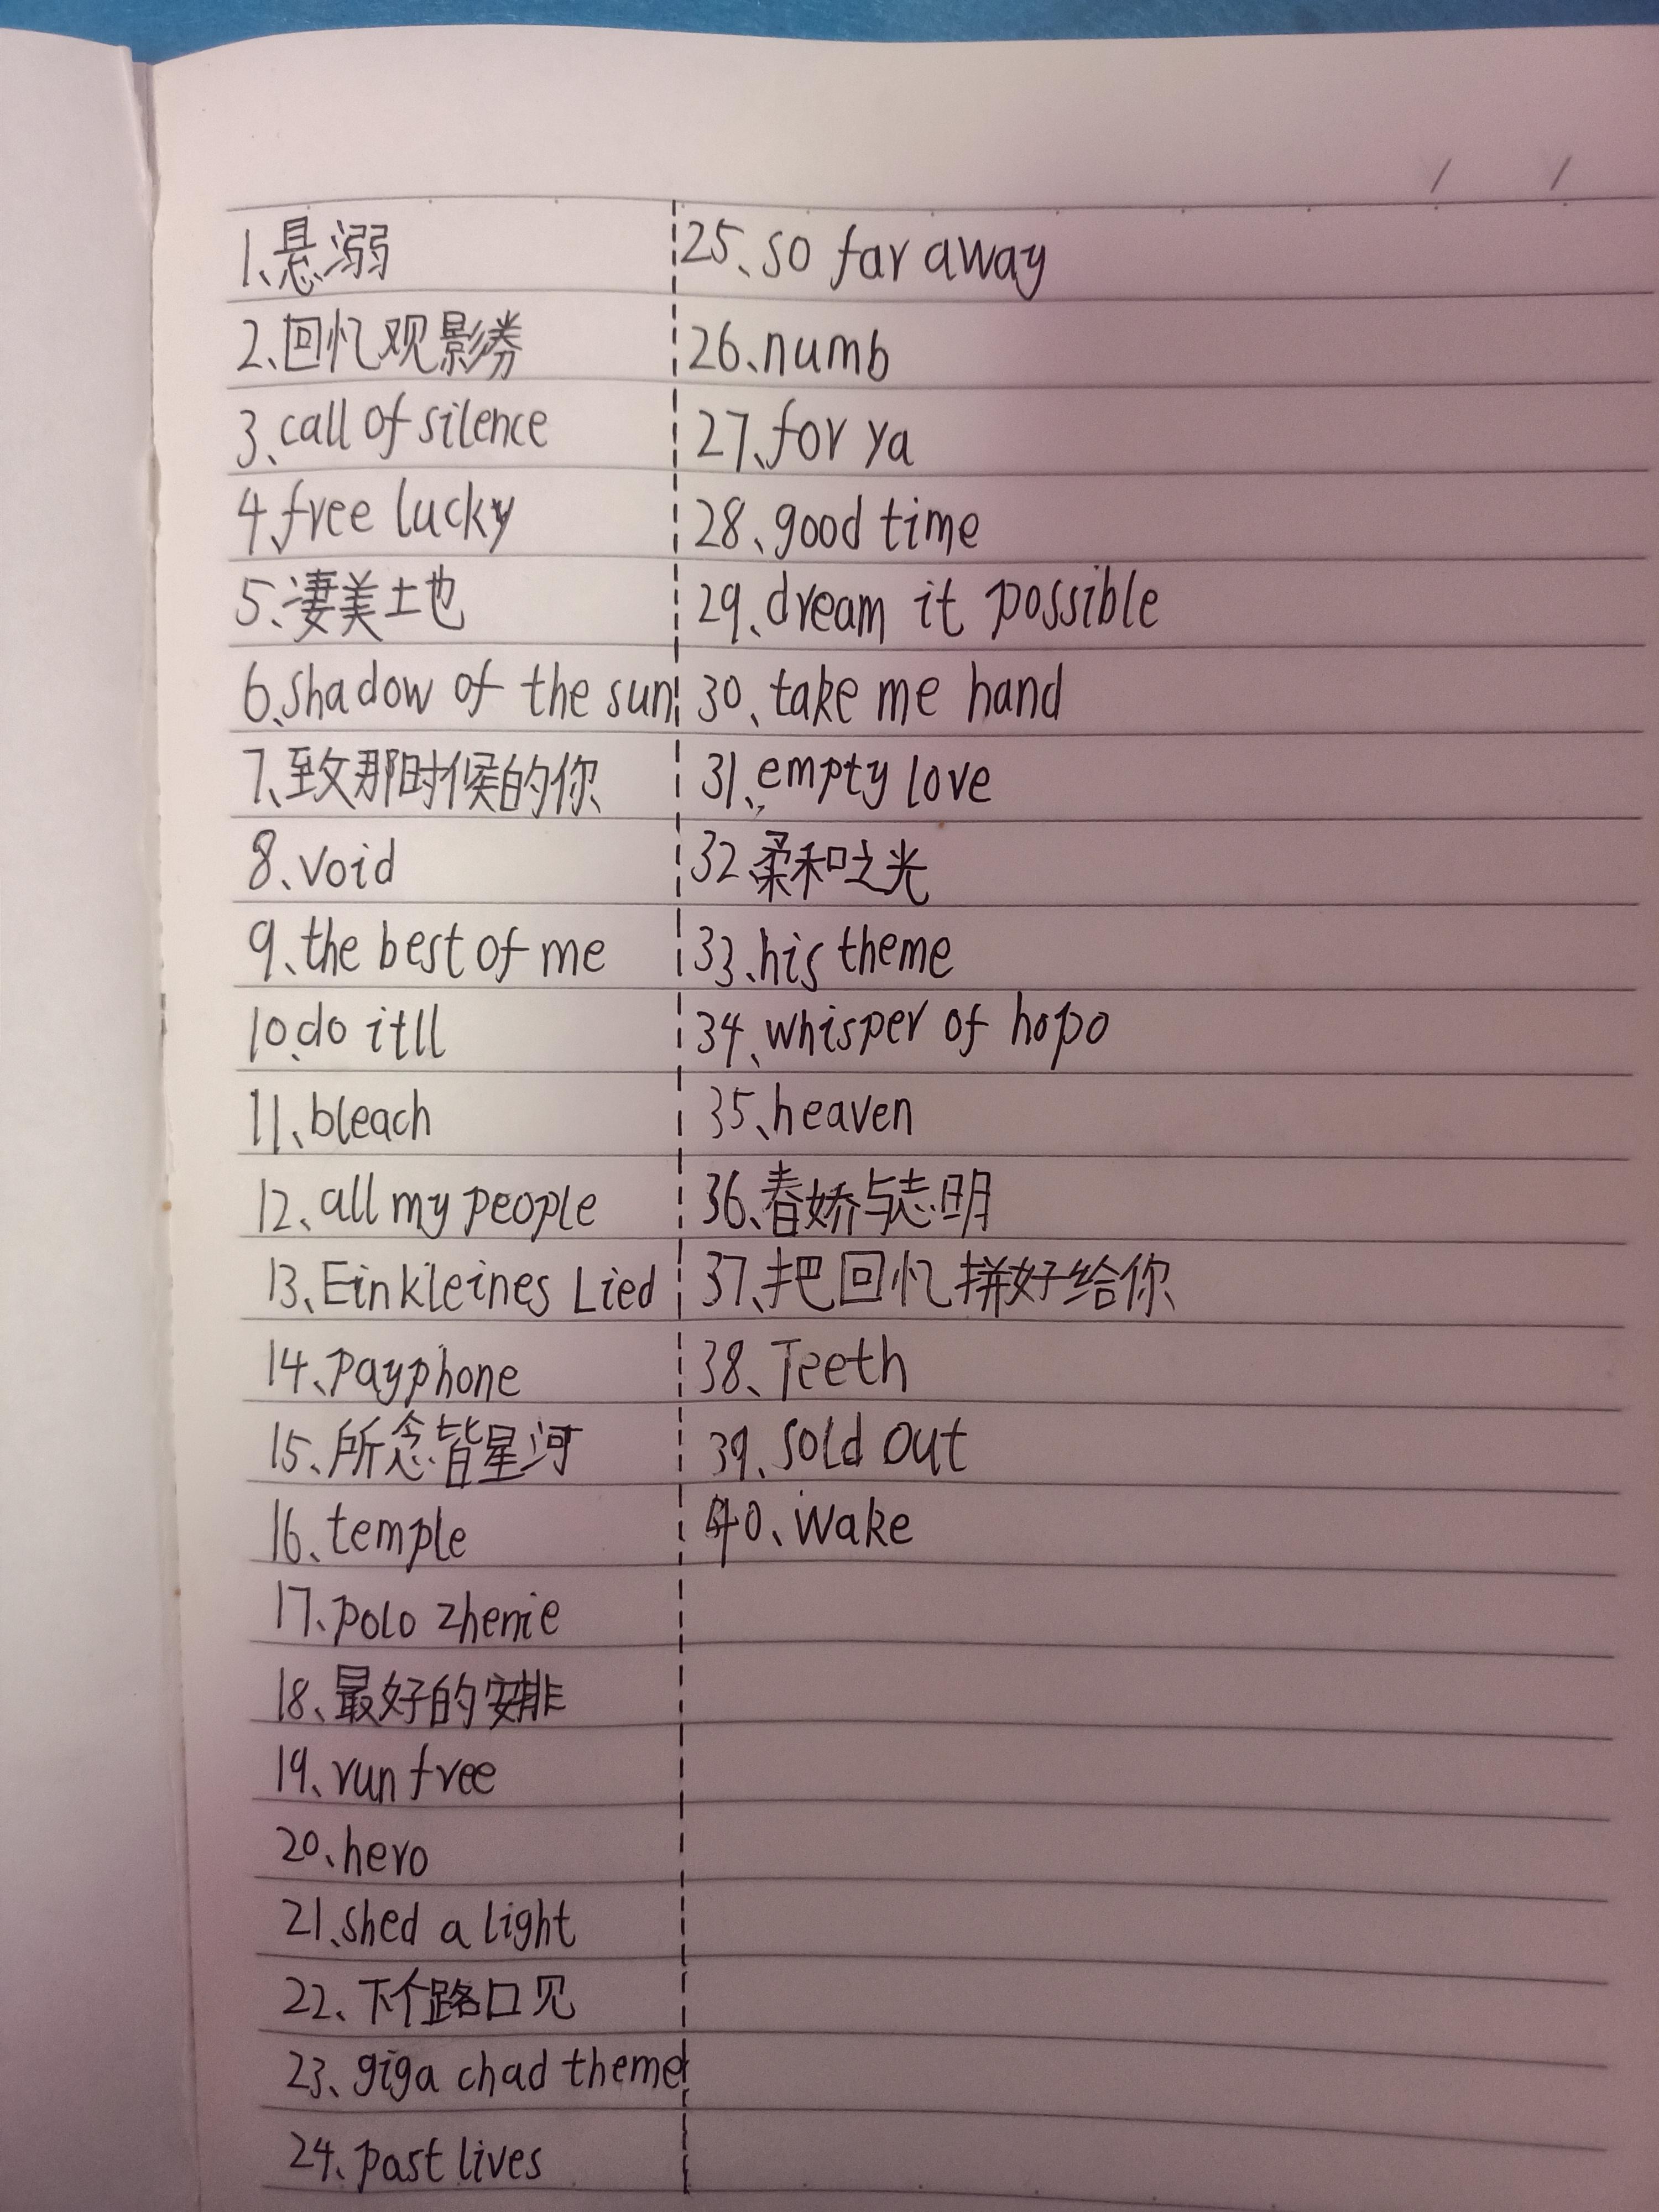 1、悬溺
2、回忆观影券
3、call of silence
4、free lucky
5、凄美土地
6、shadow of the sun
7、致那时候的你
8、void
9、the best of me
10、do itll
11、bleach
12、all my people
13、Ein kleines Lied
14、payphone
15、所念皆星河
16、temple
17、polo zhenie
18、最好的安排
19、run free
20、hero
21、shed a light
22、下个路口见
23、giga chad theme
24、past lives
25、so far away
26、numb
27、for ya
28、good time
29、dream it possible
30、take me hand
31、empty love
32、柔和之光
33、his theme
34、whisper of hopo
35、heaven
36、春娇与志明
37、把回忆拼好给你
38、Teeth
39、sold out
40、wake